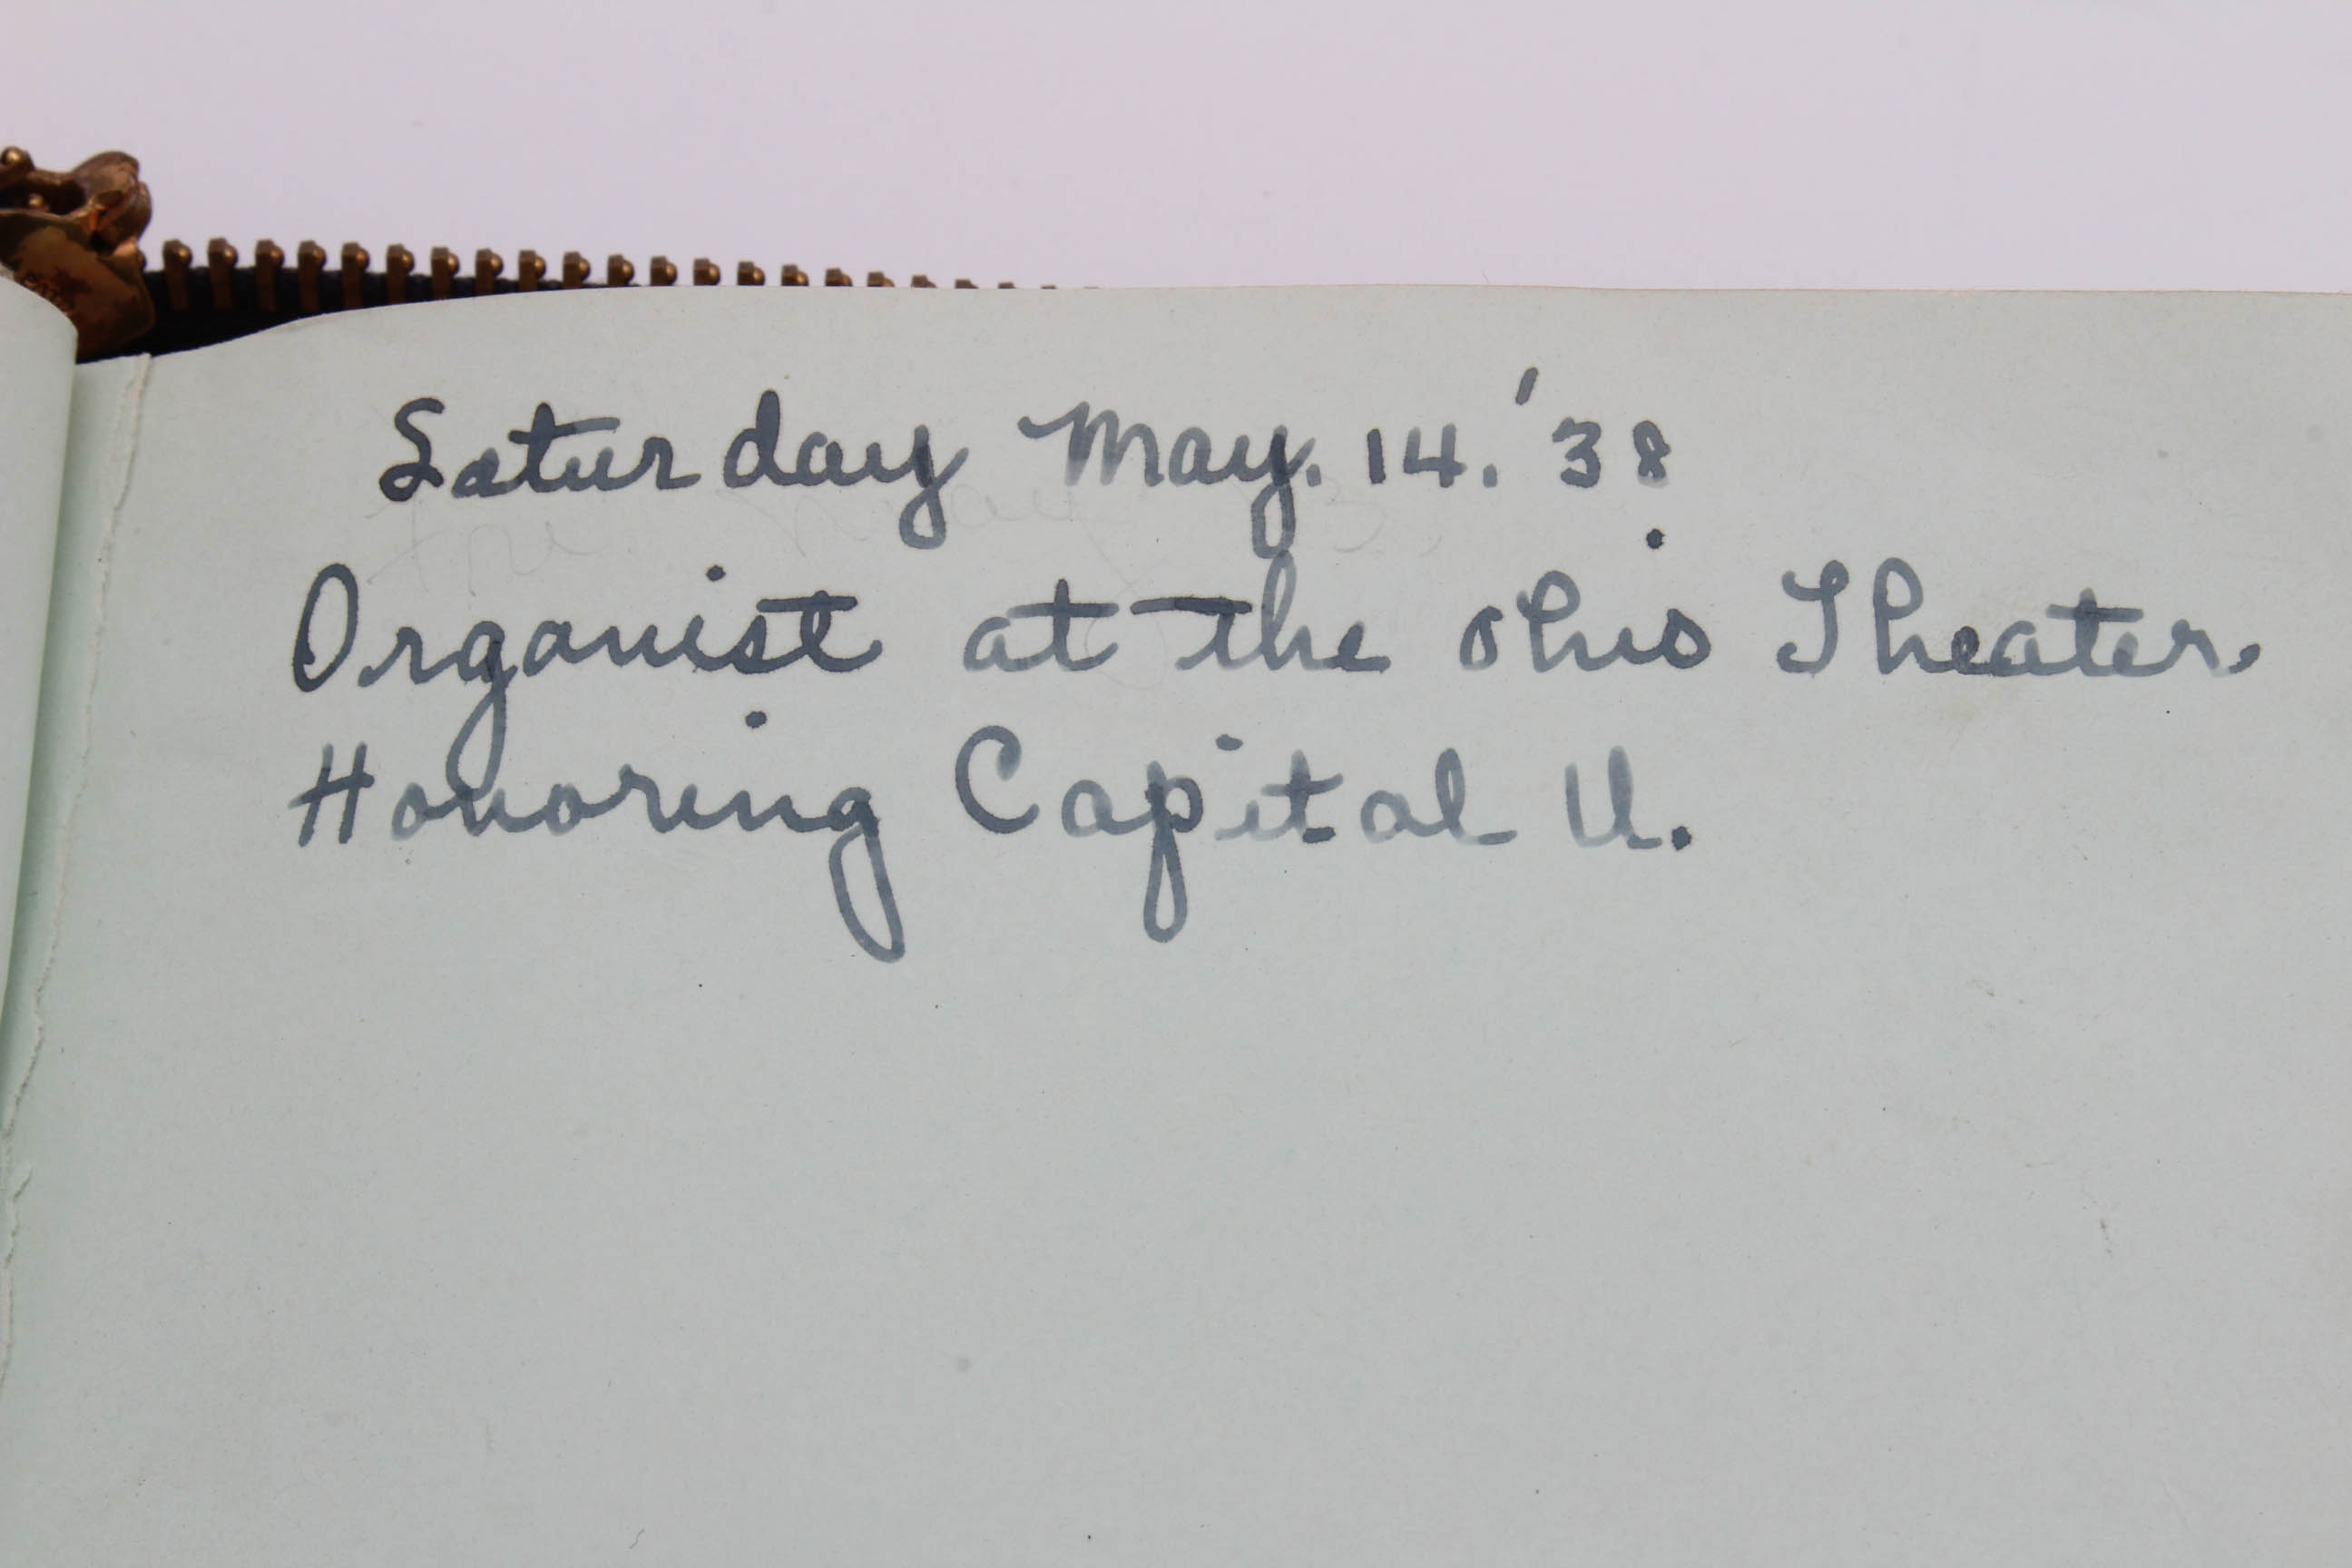 Saturday May. 14. '38
Organist at the Ohio Theater.
Honoring Capital U.